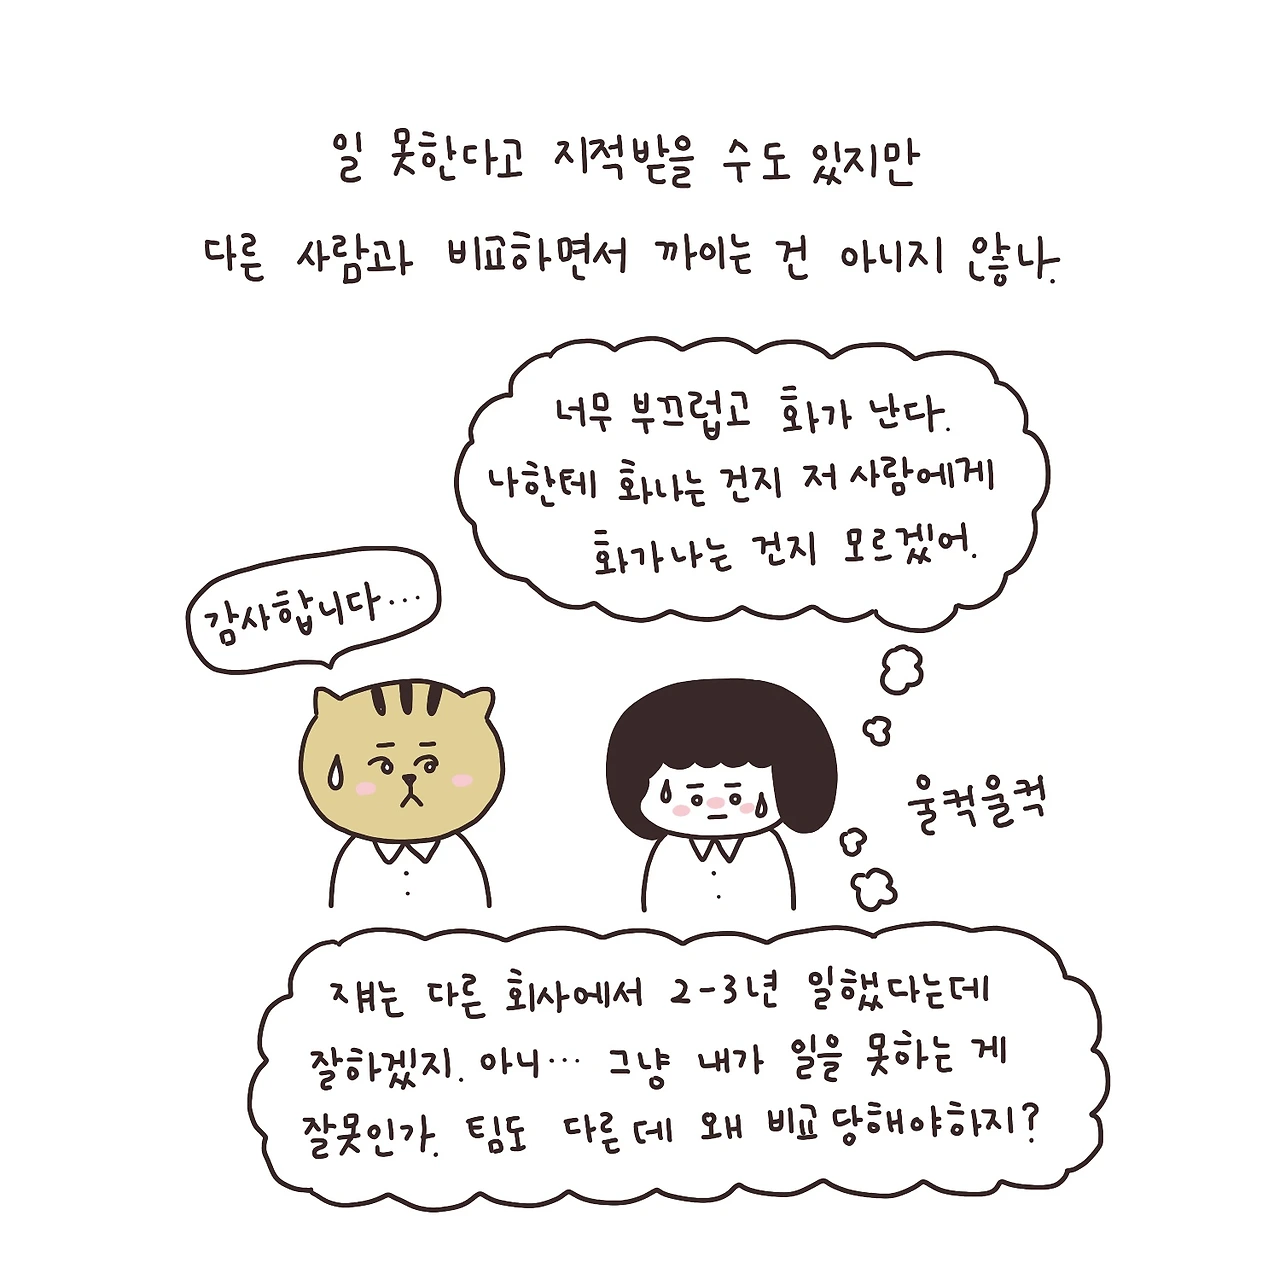 일 못한다고 지적받을 수도 있지만
다른 사람과 비교하면서 까이는 건 아니지 않나.
너무 부끄럽고 화가 난다.
나한테 화나는 건지 저 사람에게
화가나는 건지 모르겠어.
감사합니다...
울컥울컥
쟤는 다른 회사에서 2-3년 일했다는데
잘하겠지. 아니... 그냥 내가 일을 못하는 게
잘못인가. 팀도 다른데 왜 비교 당해야하지?